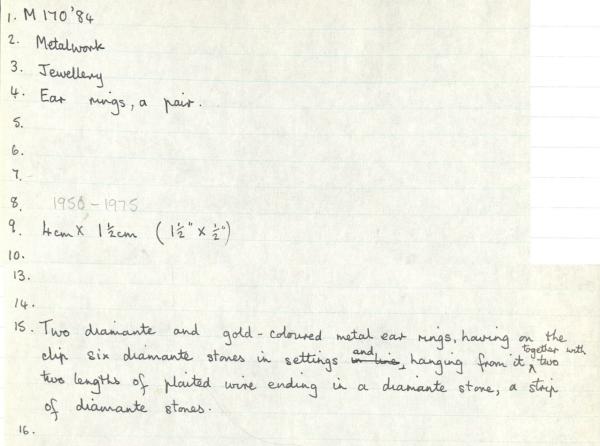 1. M 170'84
2. Metalwork
3. Jewellery
4. Ear rings, a pair.
5.
6.
7.
8. 1950-1975
9. 4cm X 1½cm (1½" X ½")
10.
13.
14.
15. Two diamante and gold-coloured metal ear rings, having on the
clip six diamante stones in settings in line and, hanging from it together with two
two lengths of plaited wire ending in a diamante stone, a strip
of diamante stones.
16.